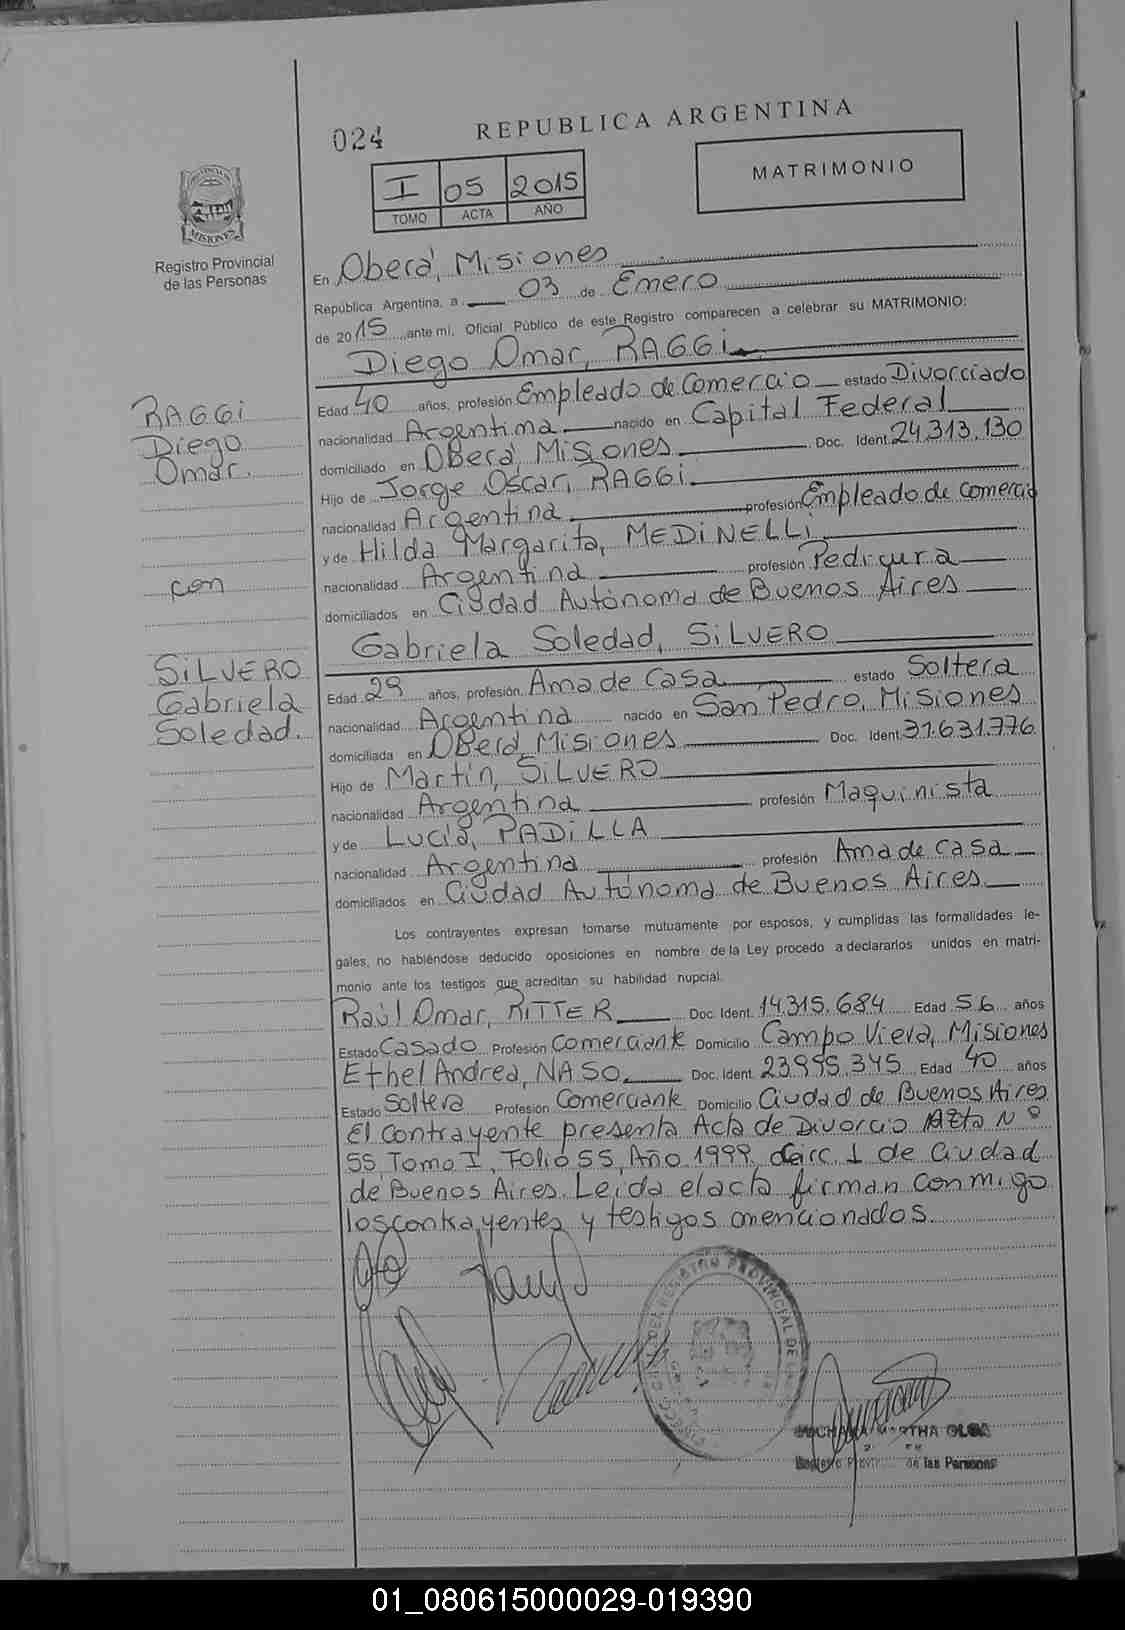 024
REPUBLICA ARGENTINA
I 05 2015
TOMO ACTA AÑO
MATRIMONIO
MISIONES
Registro Provincial
de las Personas
En Oberá, Misiones
República Argentina, a 03 de Enero
de 2015, ante mí, Oficial Público de este Registro comparecen a celebrar su MATRIMONIO:
Diego Omar, RAGGi
Edad 40 años, profesión Empleado de Comercio estado Divorciado
nacionalidad Argentina nacido en Capital Federal
domiciliado en Oberá Misiones Doc. Ident. 24.313.130
Hijo de Jorge Oscar, RAGGi
nacionalidad Argentina profesión Empleado de Comercio
y de Hilda Margarita, MEDiNELLi
nacionalidad Argentina profesión Pedicura
domiciliados en Ciudad Autónoma de Buenos Aires
Gabriela Soledad, SiLVERO
Edad 29 años, profesión Ama de Casa estado Soltera
nacionalidad Argentina nacido en San Pedro, Misiones
domiciliada en Oberá, Misiones Doc. Ident. 31.631.776
Hijo de Martín, SiLVERO
nacionalidad Argentina profesión Maquinista
y de Lucía, PADiLLA
nacionalidad Argentina profesión Ama de Casa
domiciliados en Ciudad Autónoma de Buenos Aires
RAGGi
Diego
Omar.
con
SiLVERO
Gabriela
Soledad.
Los contrayentes expresan tomarse mutuamente por esposos, y cumplidas las formalidades le-
gales, no habiéndose deducido oposiciones en nombre de la Ley procedo a declararlos unidos en matri-
monio ante los testigos que acreditan su habilidad nupcial.
Raúl Omar, RiTTER Doc. Ident. 14.315.684 Edad 56 años
Estado Casado Profesión Comerciante Domicilio Campo Viera, Misiones
Ethel Andrea, NASO. Doc. Ident. 23.995.345 Edad 40 años
Estado Soltera Profesión Comerciante Domicilio Ciudad de Buenos Aires
El contrayente presenta Acta de Divorcio Acta Nº
55 Tomo I, Folio 55, Año 1999, Circ. 1 de Ciudad
de Buenos Aires. Leida el acta firman conmigo
los contrayentes y testigos mencionados.
REGISTRO PROVINCIAL DE
MARTHA OLGA
Registro de las Personas
01_080615000029-019390